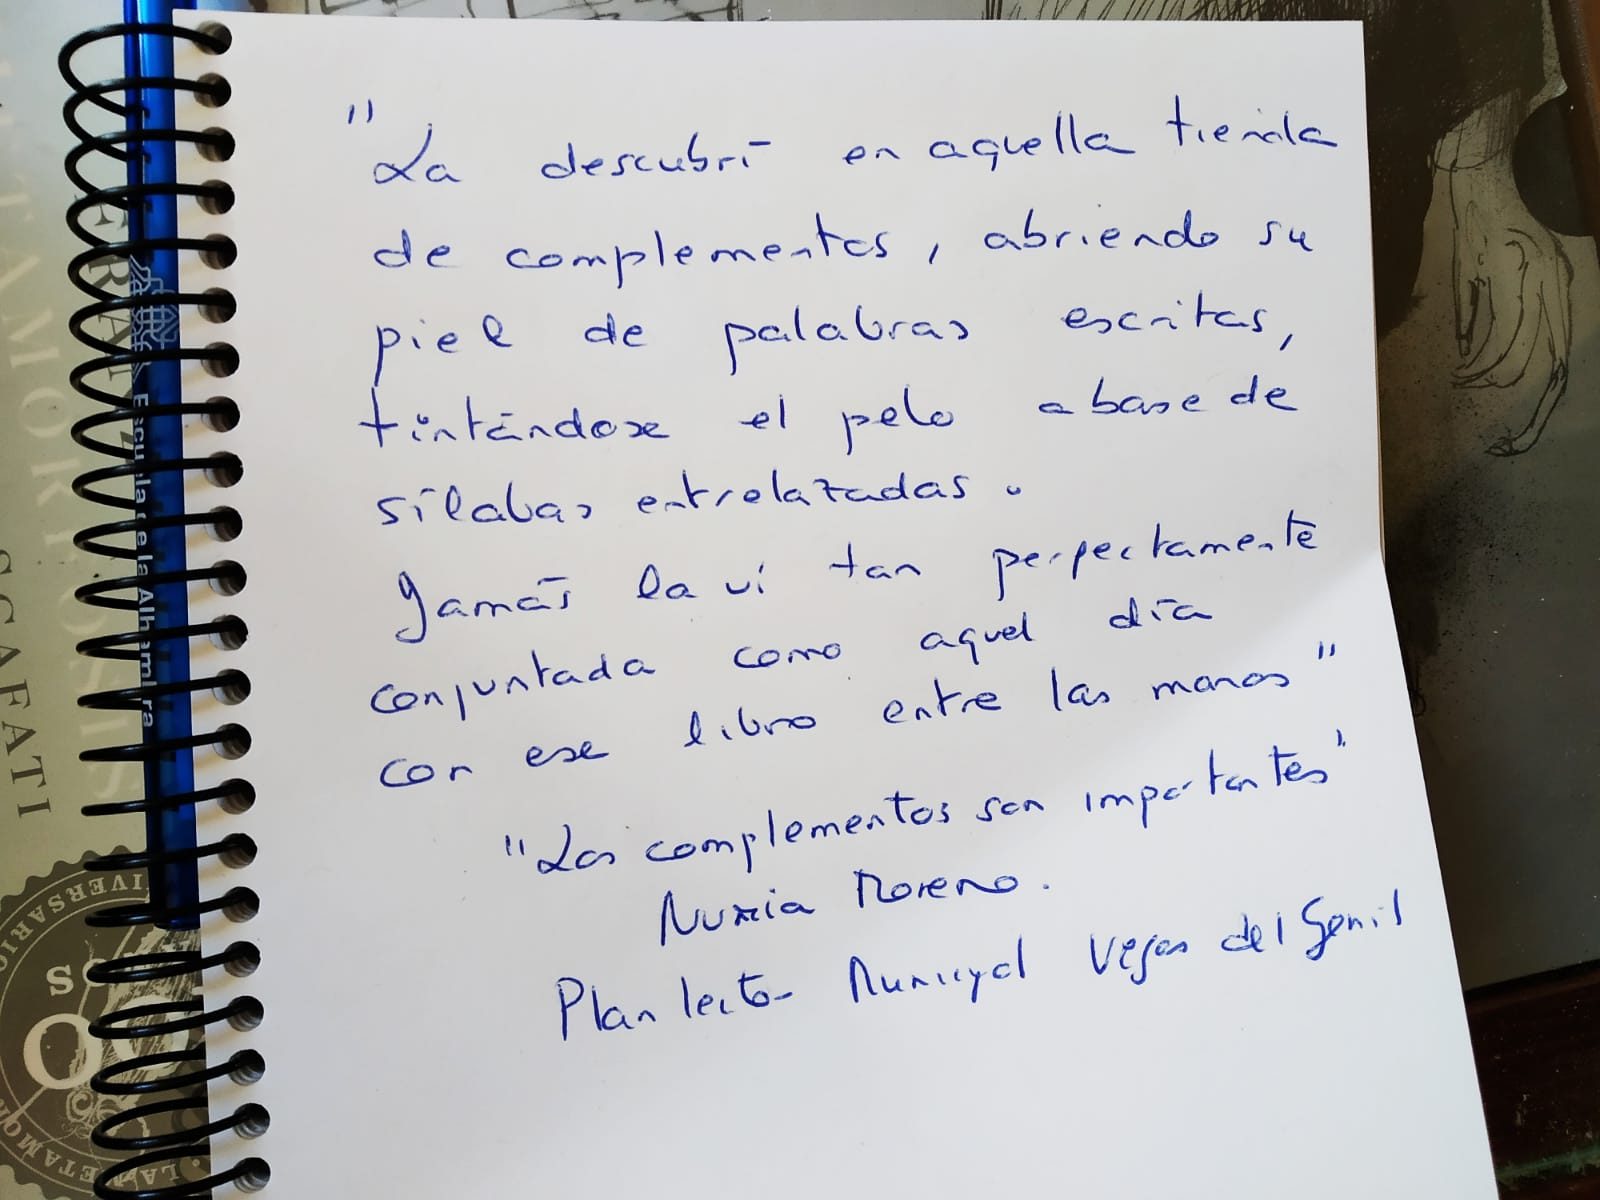 "
La descubrí en aquella tienda
de complementos, abriendo su
piel de palabras escritas,
tintándose el pelo a base de
sílabas entrelazadas.
Jamás la ví tan perfectamente
conjuntada como aquel día
con ese libro entre las manos"
"Los complementos son importantes"
Nuria Moreno.
Plan lector Municipal Vegas del Genil
Escuela de la Alhambra
SCAFATI